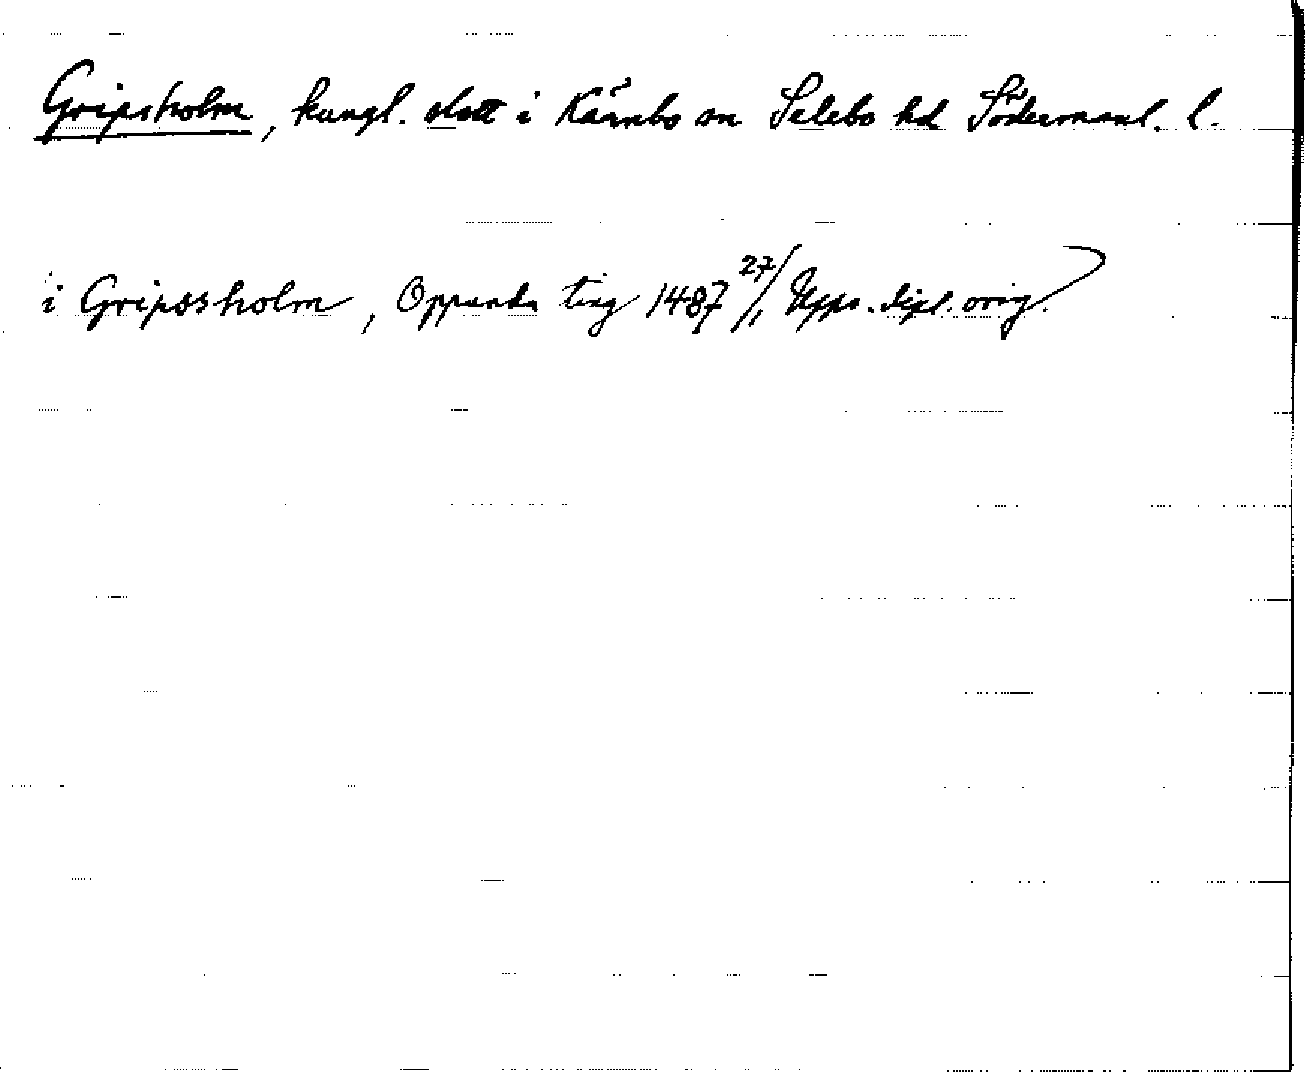 Gripsholm, kungl. slott i Kärnbo sn Selebo hd Södermanl. l.
i Gripssholm, Oppunda ting 1487 27/1, Upps. dipl. orig.